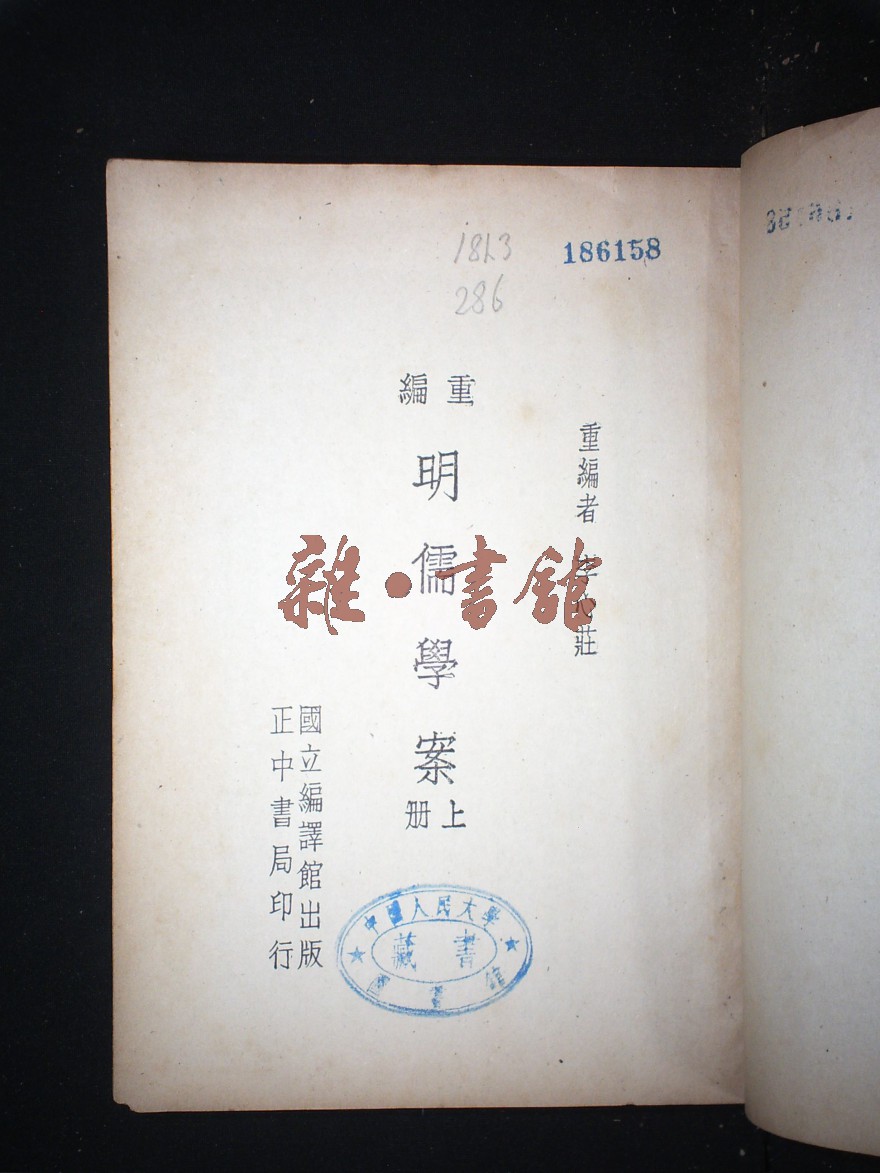 1813
286
186158
重編者 李心莊
重編
明儒學案
上册
國立編譯館出版
正中書局印行
雜·書館
中國人民大學
藏書
圖書館